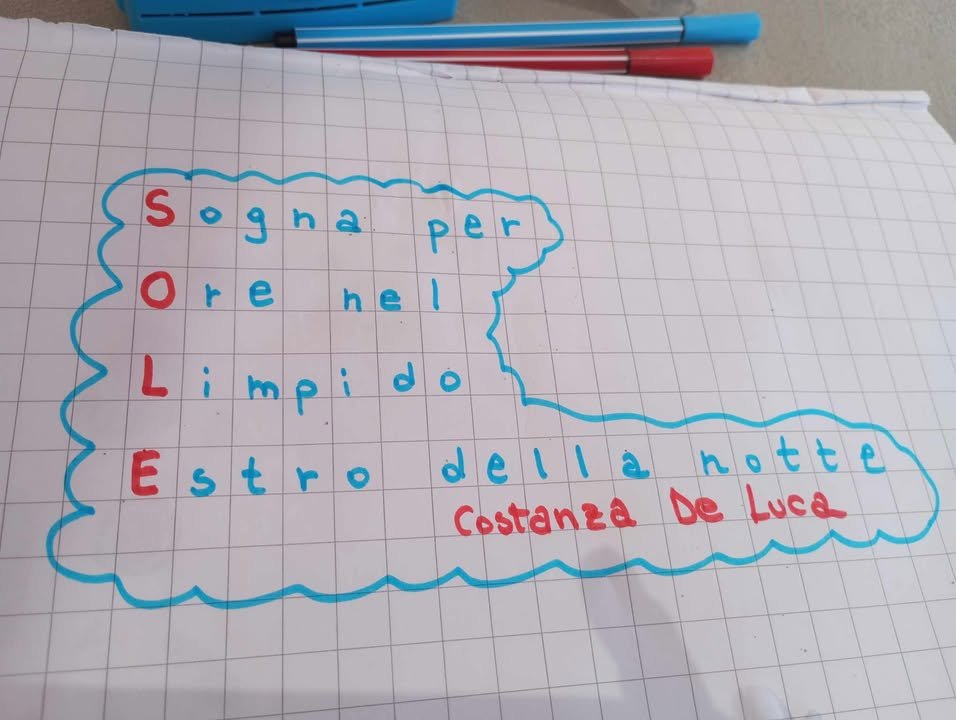 Sogna per
Ore nel
Limpido
Estro della notte
Costanza De Luca